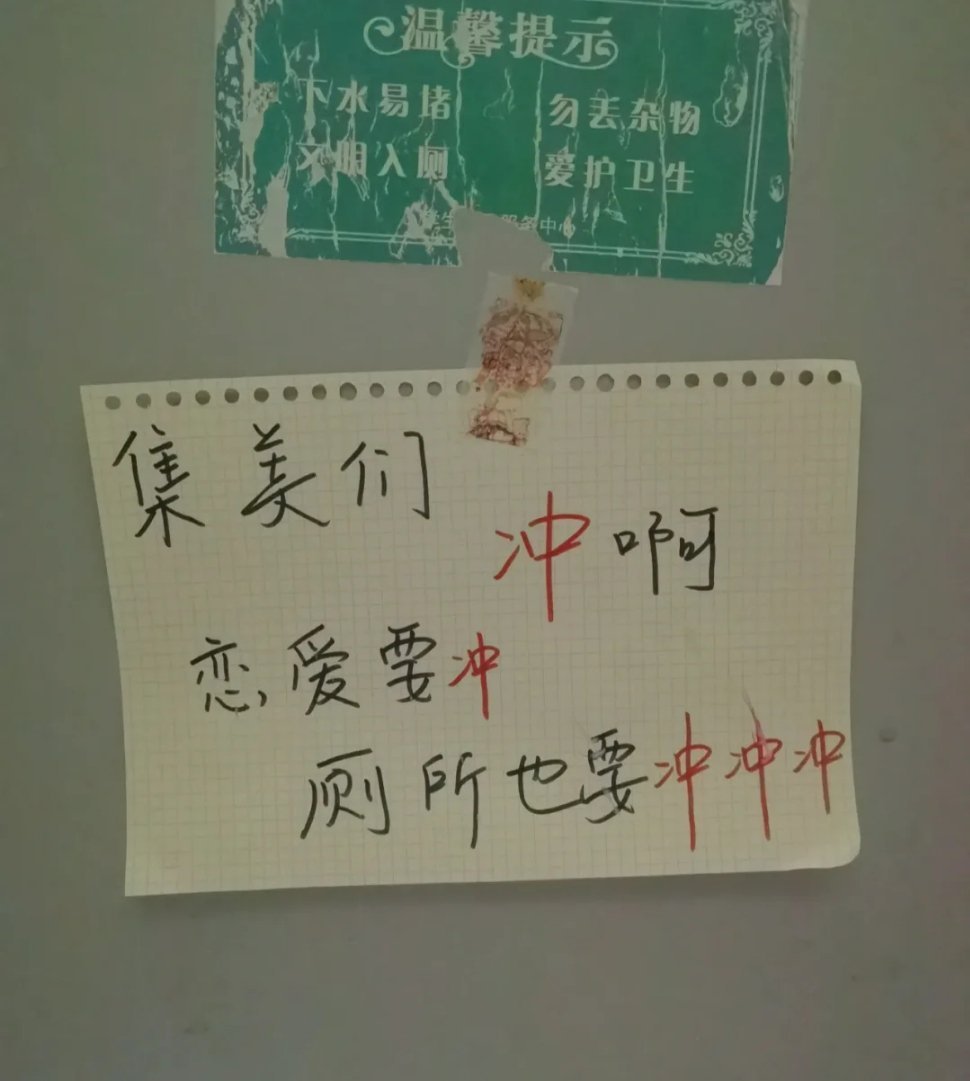 温馨提示
下水易堵 勿丢杂物
文明入厕 爱护卫生
服务中心
集美们
冲啊
恋爱要冲
厕所也要冲冲冲